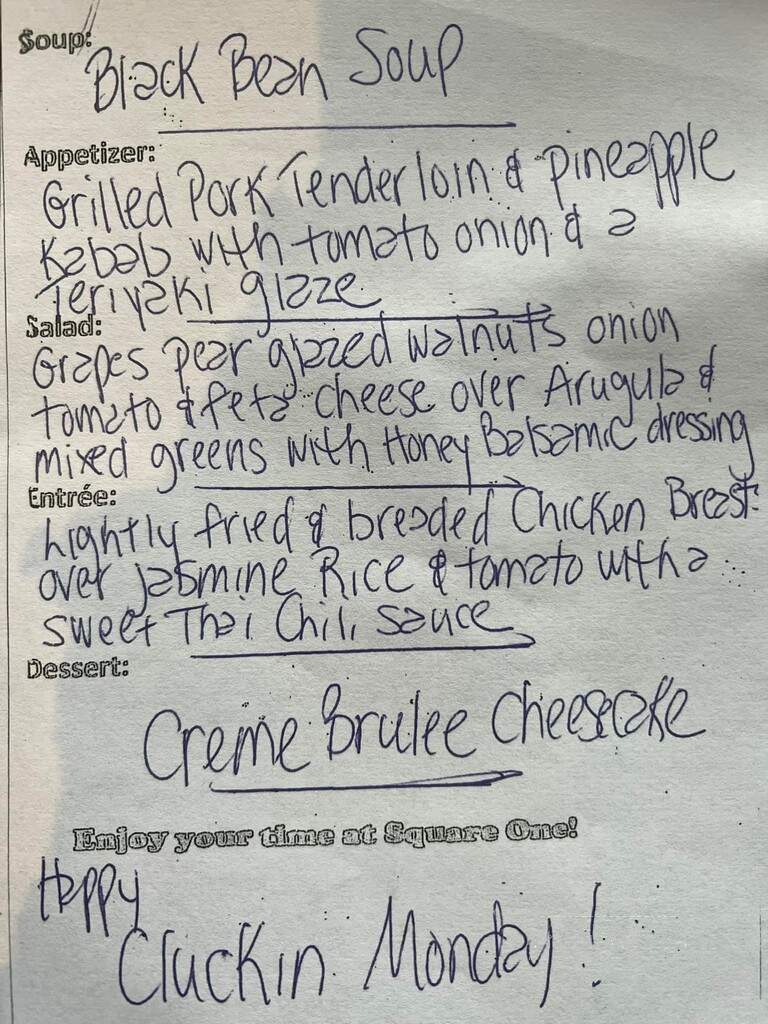 Soup:
Black Bean Soup
Appetizer:
Grilled Pork Tenderloin & pineapple
Kabab with tomato onion & a
Teriyaki glaze
Salad:
Grapes pear glazed walnuts onion
tomato & feta cheese over Arugula &
mixed greens with Honey Balsamic dressing
Entrée:
Lightly fried & breaded Chicken Breast
over Jasmine Rice & tomato with a
sweet Thai Chili sauce
Dessert:
Creme Brulee Cheesecake
Enjoy your time at Square One!
Happy
Cluckin Monday!